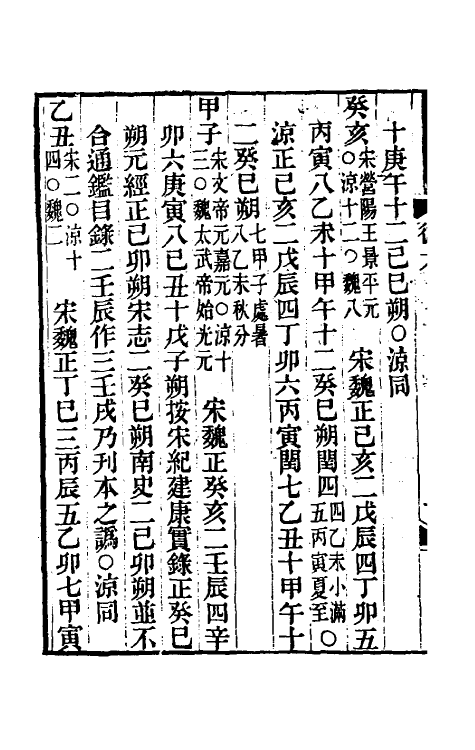 十庚午十二己巳朔〇涼同
癸亥宋營陽王景平元〇涼十二〇魏八　宋魏正己亥二戊辰四丁卯五
丙寅八乙未十甲午十二癸巳朔閏四四乙未小滿五丙寅夏至〇
涼正己亥二戊辰四丁卯六丙寅閏七乙丑十甲午十
二癸巳朔七甲子處暑八乙未秋分
甲子宋文帝元嘉元〇涼十三〇魏太武帝始光元　宋魏正癸亥二壬辰四辛
卯六庚寅八己丑十戊子朔按宋紀建康實錄正癸巳
朔元經正己卯朔宋志二癸巳朔南史二己卯朔並不
合通鑑目錄二壬辰作三壬戌乃刊本之譌〇涼同
乙丑宋二〇涼十四〇魏二　宋魏正丁巳三丙辰五乙卯七甲寅